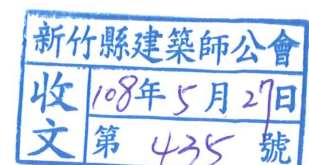 新竹縣建築師公會
收文
108年5月27日
第 435 號